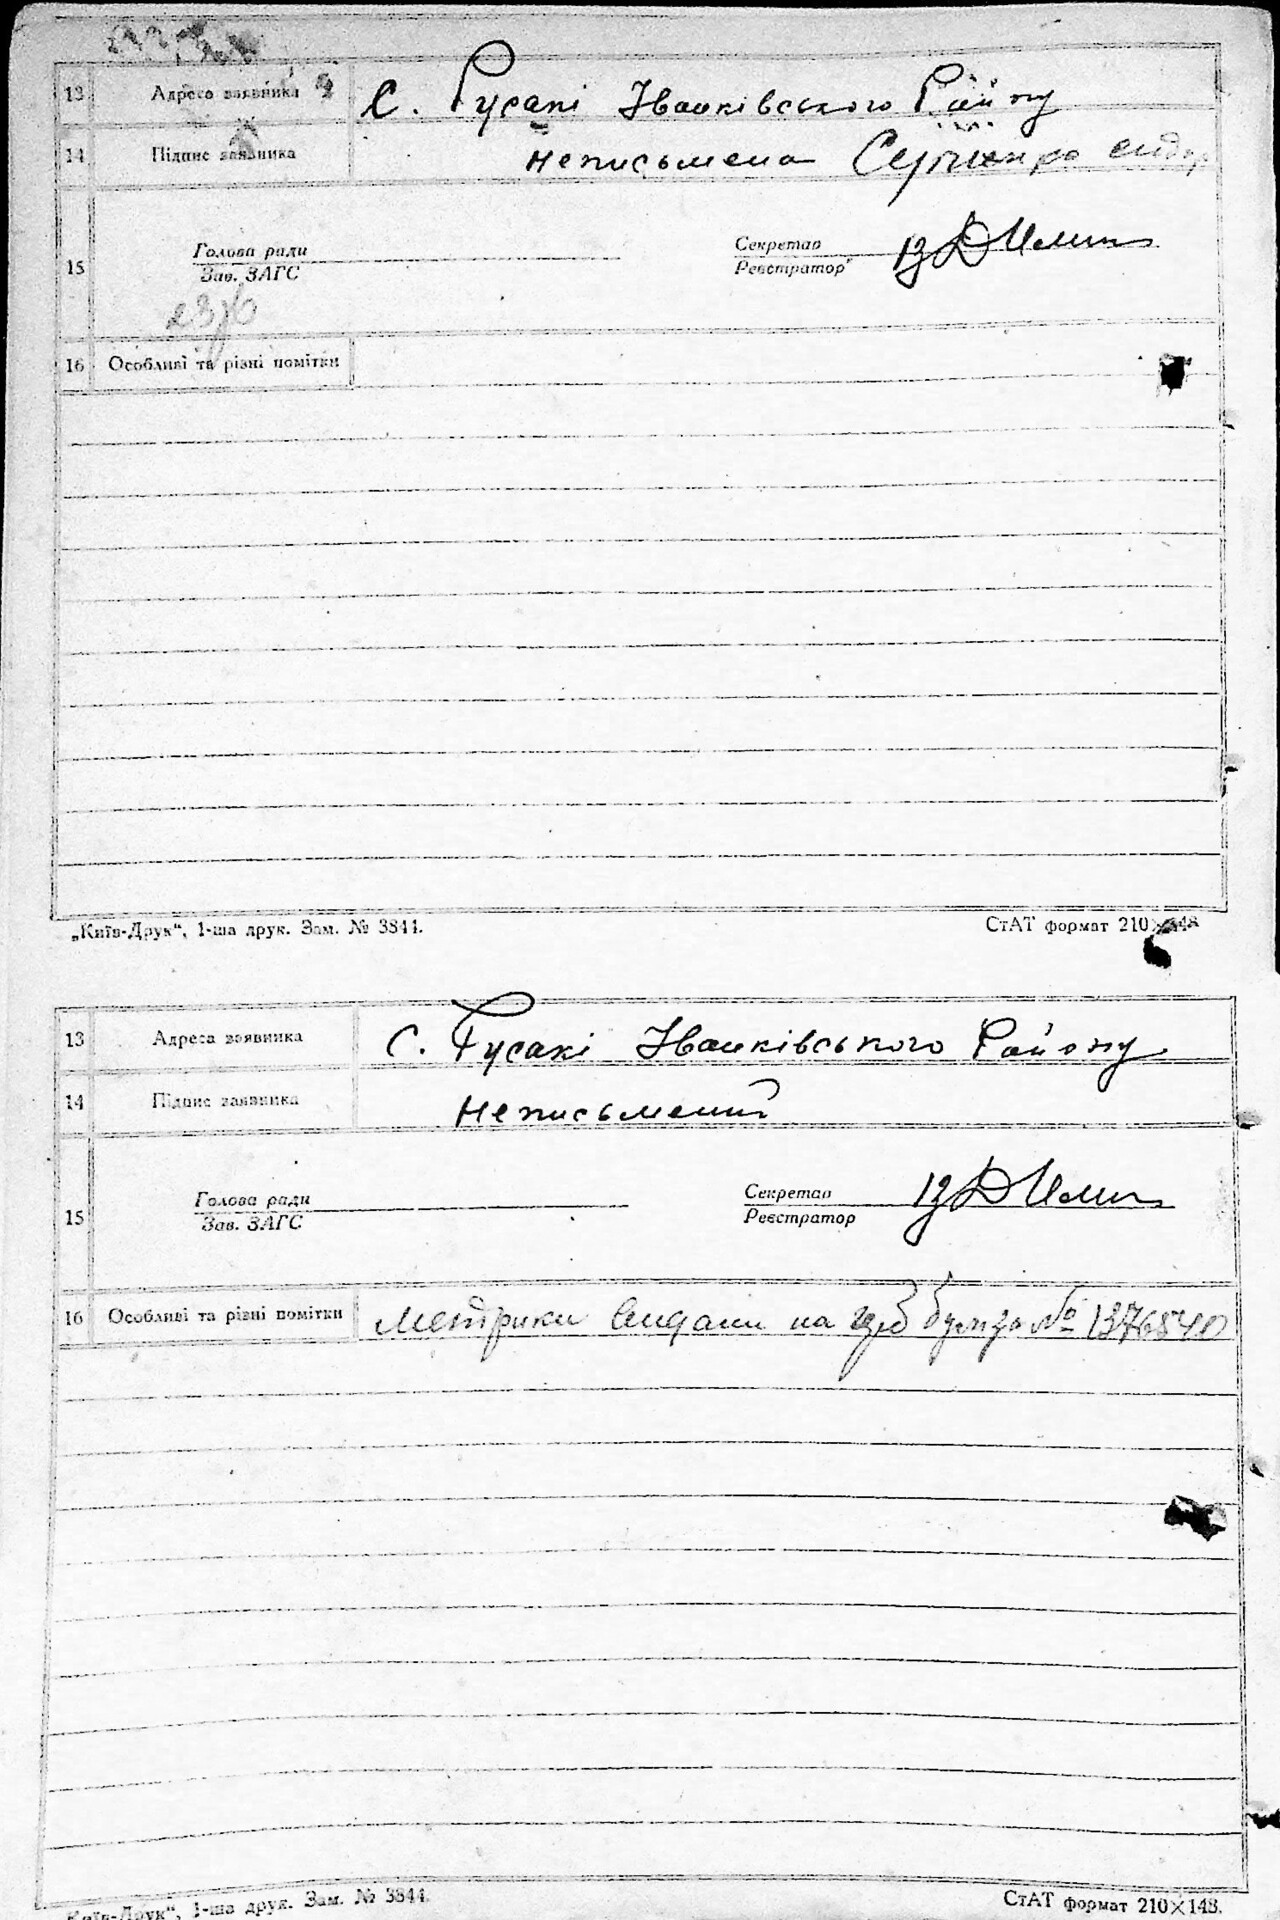 13 Адреса заявника с. Русакі Іванківського Району
14 Підпис заявника неписьмена
Голова ради Секретар
15
Зав. ЗАГС Реєстратор
16 Особливі та різні помітки
„Київ-Друк“, 1-ша друк. Зам. № 3844. СтАТ формат 210×148
13 Адреса заявника с. Русакі Іванківського Району
14 Підпис заявника неписьмений
Голова ради Секретар
15
Зав. ЗАГС Реєстратор
16 Особливі та різні помітки Метрики видани на № 1376540
„Київ-Друк“, 1-ша друк. Зам. № 3844. СтАТ формат 210×148.